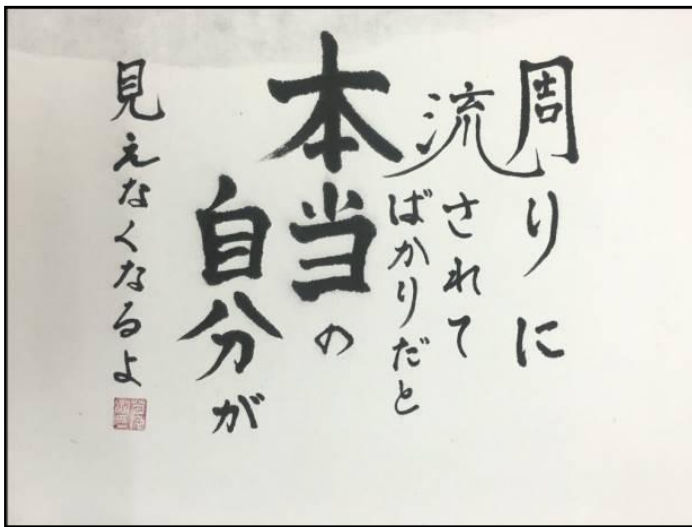 周りに
流されて
ばかりだと
本当の
自分が
見えなくなるよ